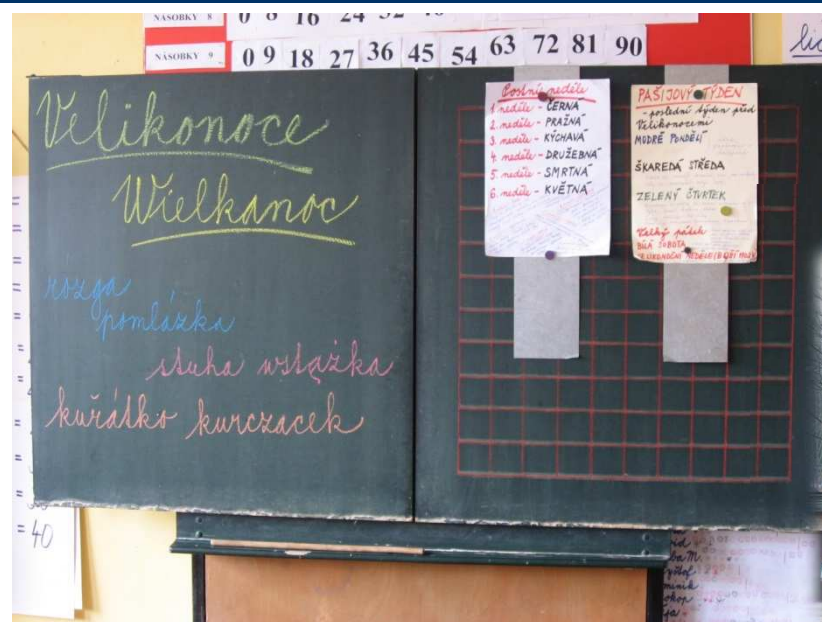 NÁSOBKY 8 0 8 16 24 32
NÁSOBKY 9 0 9 18 27 36 45 54 63 72 81 90
Velikonoce
Wielkanoc
rózga
pomlázka
stuha wstążka
kuřátko kurczacek
Postní neděle
1. neděle - ČERNÁ
2. neděle - PRAŽNÁ
3. neděle - KÝCHAVÁ
4. neděle - DRUŽEBNÁ
5. neděle - SMRTNÁ
6. neděle - KVĚTNÁ
PAŠIJOVÝ TÝDEN
- poslední týden před
Velikonocemi
MODRÉ PONDĚLÍ
ŠKAREDÁ STŘEDA
ZELENÝ ČTVRTEK
Velký pátek
BÍLÁ SOBOTA
= 40